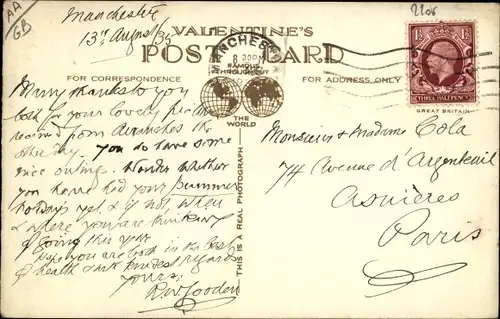 AA
GB
Manchester
13th August 35
2208
VALENTINE'S
POST CARD
MANCHESTER
8 30PM
FAMOUS
THROUGHOUT
THE WORLD
FOR CORRESPONDENCE
FOR ADDRESS ONLY
THIS IS A REAL PHOTOGRAPH
1½
1½
THREE HALFPENCE
GREAT BRITAIN
Many thanks to you
both for your lovely picture
received from Avranches the
other day. You do have some
nice outings. Wonder whether
you have had your Summer
holidays yet & if not, when
& where you are thinking
of going this year
Hope you are both in the best
of health & with kindest regards
Yours.
R.W. Gooden
Monsieur & Madame Cola
74 Avenue d'Argenteuil
Asnières
Paris